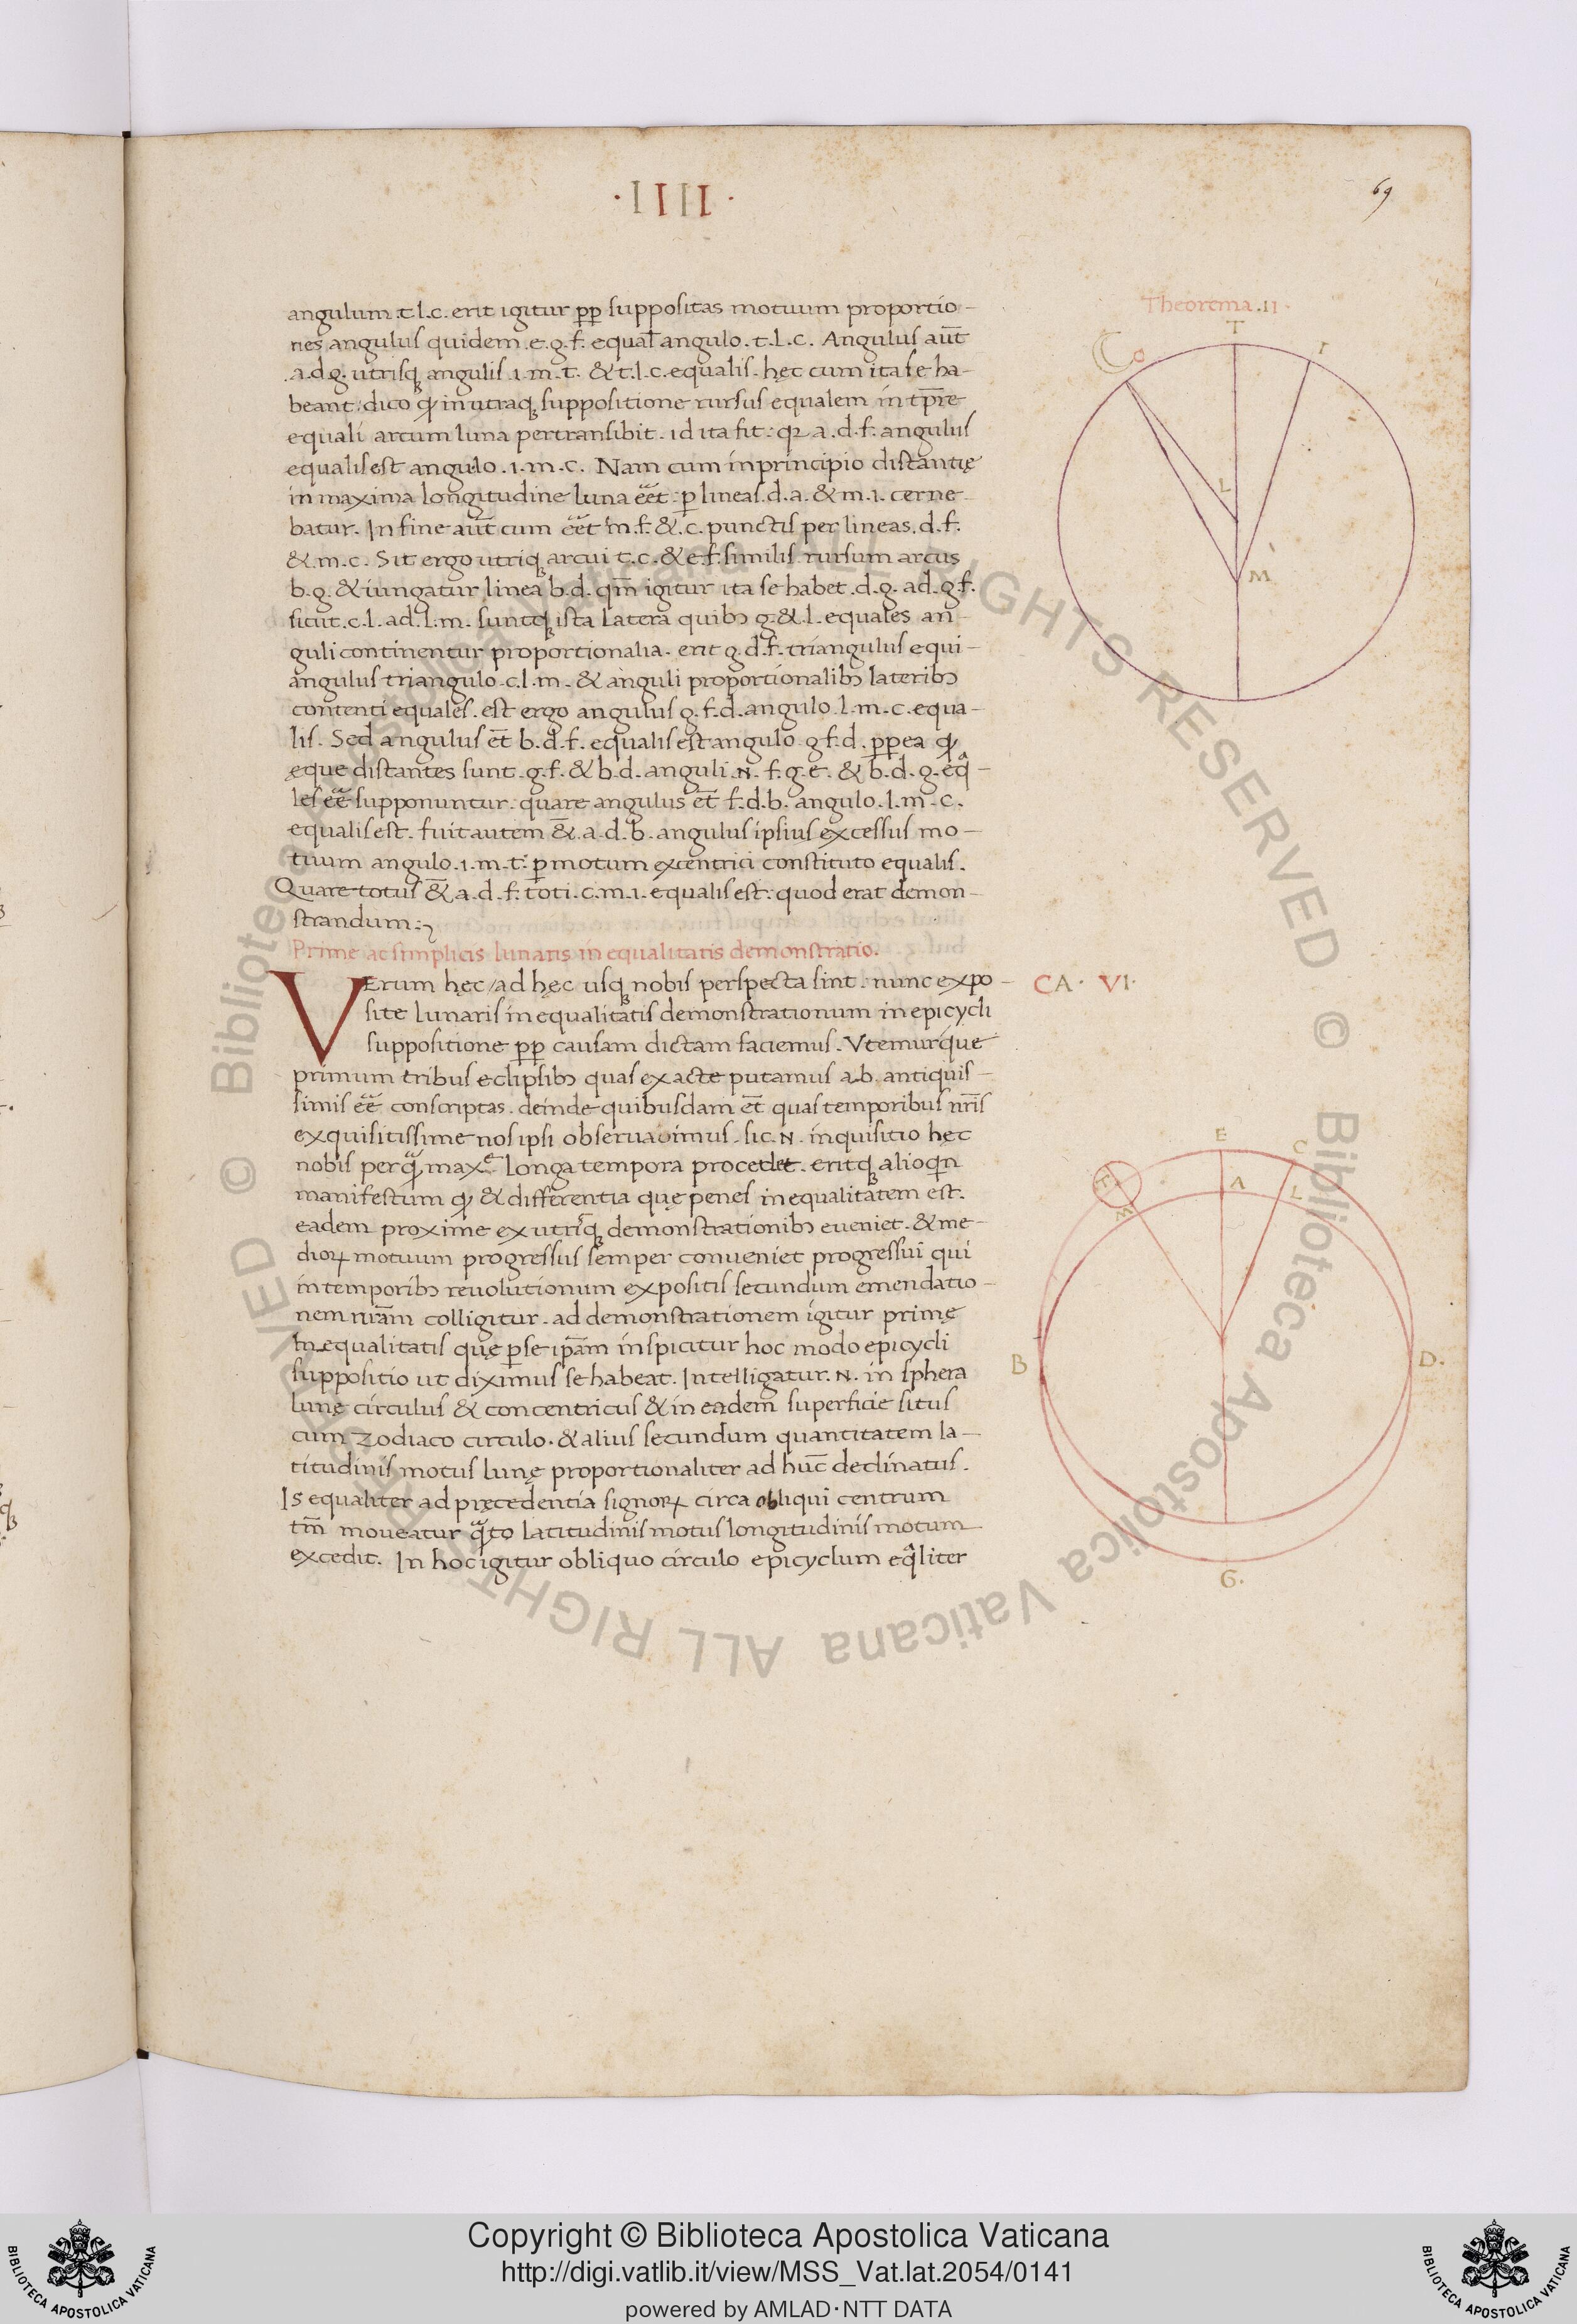 ·IIII·
69
angulum .t.l.c. erit igitur pp̄ suppositas motuum proportio-
nes angulus quidem .e.g.f. equal̄ angulo .t.l.c. Angulus aut̄
.a.d.g. utrisqꝫ angulis .i.m.t. & t.l.c. equalis. hęc cum ita se ha-
beant: dico ꝙ in utraqꝫ suppositione rursus equalem in tp̄re
equali arcum luna pertransibit. id ita fit: qꝛ a.d.f. angulus
equalis est angulo .i.m.c. Nam cum in principio distantię
in maxima longitudine luna eēt: ꝑ lineas .d.a. & m.i. cerne-
batur. In fine aut̄ cum eēt in .f. & .c. punctis per lineas .d.f.
& .m.c. Sit ergo utriqꝫ arcui t.c. & e.f. similis rursum arcus
b.g. & iungatur linea b.d. qm̄ igitur ita se habet .d.g. ad .g.f.
sicut .c.l. ad .l.m. suntqꝫ ista latera quibꝫ g. & l. equales an-
guli continentur proportionalia. erit g.d.f. triangulus equi-
angulus triangulo .c.l.m. & anguli proportionalibꝫ lateribꝫ
contenti equales. est ergo angulus g.f.d. angulo .l.m.c. equa-
lis. Sed angulus et̄ b.d.f. equalis est angulo g.f.d. pp̄ ea ꝙ
ęque distantes sunt .g.f. & b.d. anguli .N. f.g.e. & b.d.g. eq̄-
les eē supponuntur. quare angulus et̄ f.d.b. angulo .l.m.c.
equalis est. fuit autem & .a.d.b. angulus ipsius excessus mo-
tuum angulo .i.m.t. ꝑ motum excentrici constituto equalis.
Quare totus & a.d.f. toti .c.m.i. equalis est: quod erat demon-
strandum:
Prime ac simplicis lunaris in equalitatis demonstratio.
VErum hęc / ad hęc usqꝫ nobis perspecta sint. nunc expo-
site lunaris in equalitatis demonstrationum in epicycli
suppositione pp̄ causam dictam faciemus. Vtemurque
primum tribus eclipsibꝫ quas exacte putamus ab antiquis-
simis eē conscriptas. deinde quibusdam et̄ quas temporibus nr̄is
exquisitissime nos ipsi obseruauimus. sic .N. inquisitio hęc
nobis perq̄ maxe longa tempora procedet. eritqꝫ alioqn
manifestum ꝙ & differentia quę penes in equalitatem est.
eadem proxime ex utriqꝫ demonstrationibꝫ eueniet. & me-
dioꝝ motuum progressus semper conueniet progressui qui
in temporibꝫ reuolutionum expositis secundum emendatio-
nem nr̄am colligitur. ad demonstrationem igitur primę
in equalitatis quę ꝑ se ip̄am inspicitur hoc modo epicycli
suppositio ut diximus se habeat. Intelligatur .N. in sphera
lunę circulus & concentricus & in eadem superficie situs
cum zodiaco circulo. & alius secundum quantitatem la-
titudinis motus lunę proportionaliter ad hunc declinatus.
Is equaliter ad pręcedentia signoꝝ circa obliqui centrum
tm̄ moueatur q̄to latitudinis motus longitudinis motum
excedit. In hoc igitur obliquo circulo epicyclum eq̄liter
Theorema .II.
T
I
C
L
M
CA· VI·
E
C
A
L
M
B
D.
G.
Copyright © Biblioteca Apostolica Vaticana
http://digi.vatlib.it/view/MSS_Vat.lat.2054/0141
powered by AMLAD·NTT DATA
BIBLIOTECA APOSTOLICA VATICANA
BIBLIOTECA APOSTOLICA VATICANA
© Biblioteca Apostolica Vaticana ALL RIGHTS RESERVED © Biblioteca Apostolica Vaticana ALL RIGHTS RESERVED